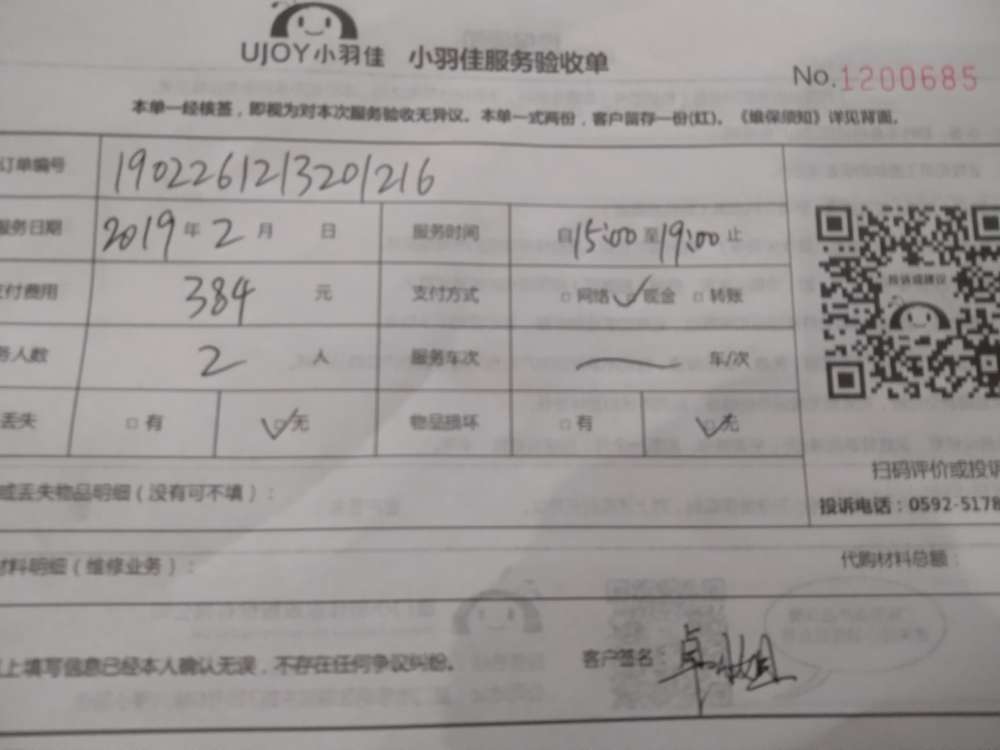 UJOY小羽佳 小羽佳服务验收单
No.1200685
本单一经核签，即视为对本次服务验收无异议。本单一式两份，客户留存一份(红)。《维保须知》详见背面。
订单编号 1902261213201216
服务日期 2019年2月 日 服务时间 自15:00至19:00止
支付费用 384元 支付方式 □网络 ☑现金 □转账
务人数 2人 服务车次 — 车/次
丢失 □有 ☑无 物品损坏 □有 ☑无
投诉或建议
扫码评价或投诉
投诉电话：0592-5178
或丢失物品明细（没有可不填）：
材料明细（维修业务）： 代购材料总额：
上填写信息已经本人确认无误，不存在任何争议纠纷。 客户签名 卓小姐